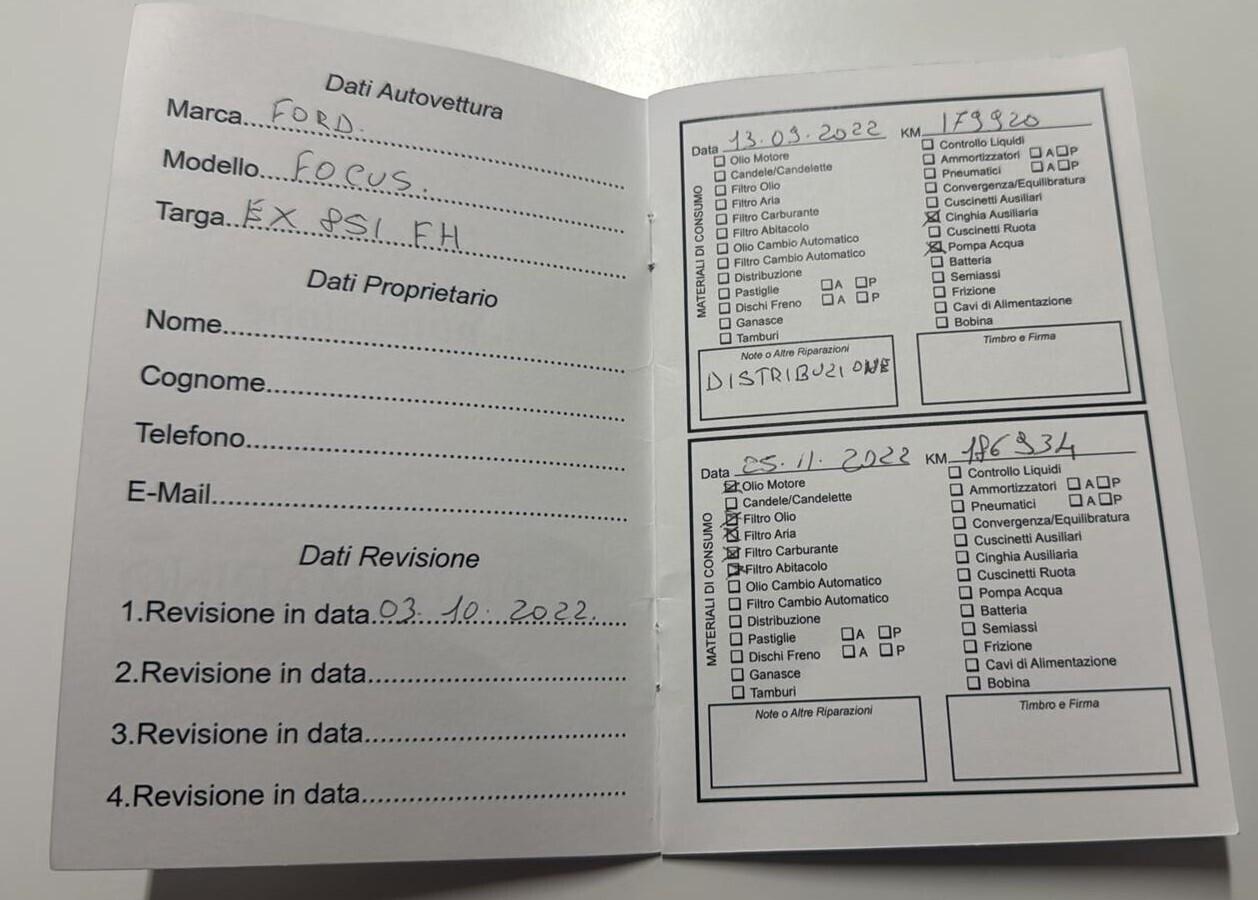 Dati Autovettura
Marca...FORD.
Modello...FOCUS.
Targa...EX 851 FH
Dati Proprietario
Nome
Cognome
Telefono
E-Mail
Dati Revisione
1.Revisione in data 03.10.2022.
2.Revisione in data
3.Revisione in data
4.Revisione in data
Data 13.09.2022 KM 179920
MATERIALI DI CONSUMO
Olio Motore
Candele/Candelette
Filtro Olio
Filtro Aria
Filtro Carburante
Filtro Abitacolo
Olio Cambio Automatico
Filtro Cambio Automatico
Distribuzione
Pastiglie A P
Dischi Freno A P
Ganasce
Tamburi
Controllo Liquidi
Ammortizzatori A P
Pneumatici A P
Convergenza/Equilibratura
Cuscinetti Ausiliari
Cinghia Ausiliaria
Cuscinetti Ruota
Pompa Acqua
Batteria
Semiassi
Frizione
Cavi di Alimentazione
Bobina
Note o Altre Riparazioni
DISTRIBUZIONE
Timbro e Firma
Data 25.11.2022 KM 186934
MATERIALI DI CONSUMO
Olio Motore
Candele/Candelette
Filtro Olio
Filtro Aria
Filtro Carburante
Filtro Abitacolo
Olio Cambio Automatico
Filtro Cambio Automatico
Distribuzione
Pastiglie A P
Dischi Freno A P
Ganasce
Tamburi
Controllo Liquidi
Ammortizzatori A P
Pneumatici A P
Convergenza/Equilibratura
Cuscinetti Ausiliari
Cinghia Ausiliaria
Cuscinetti Ruota
Pompa Acqua
Batteria
Semiassi
Frizione
Cavi di Alimentazione
Bobina
Note o Altre Riparazioni
Timbro e Firma